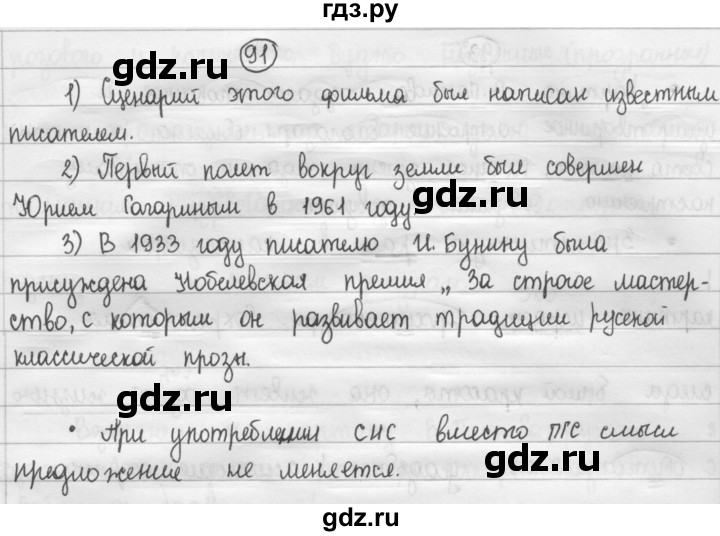 гдз.ру
91
gdz.ru
gdz.ru
1) Сценарий этого фильма был написан известным
писателем.
2) Первый полет вокруг земли был совершен
Юрием Гагариным в 1961 году
gdz.ru
3) В 1933 году писателю И. Бунину была
присуждена Нобелевская премия „За строгое мастер-
ство, с которым он развивает традиции русской
классической прозы.
gdz.ru
• При употреблении СНС вместо ПГС смысл
предложение не меняется.
gdz.ru
gdz.ru